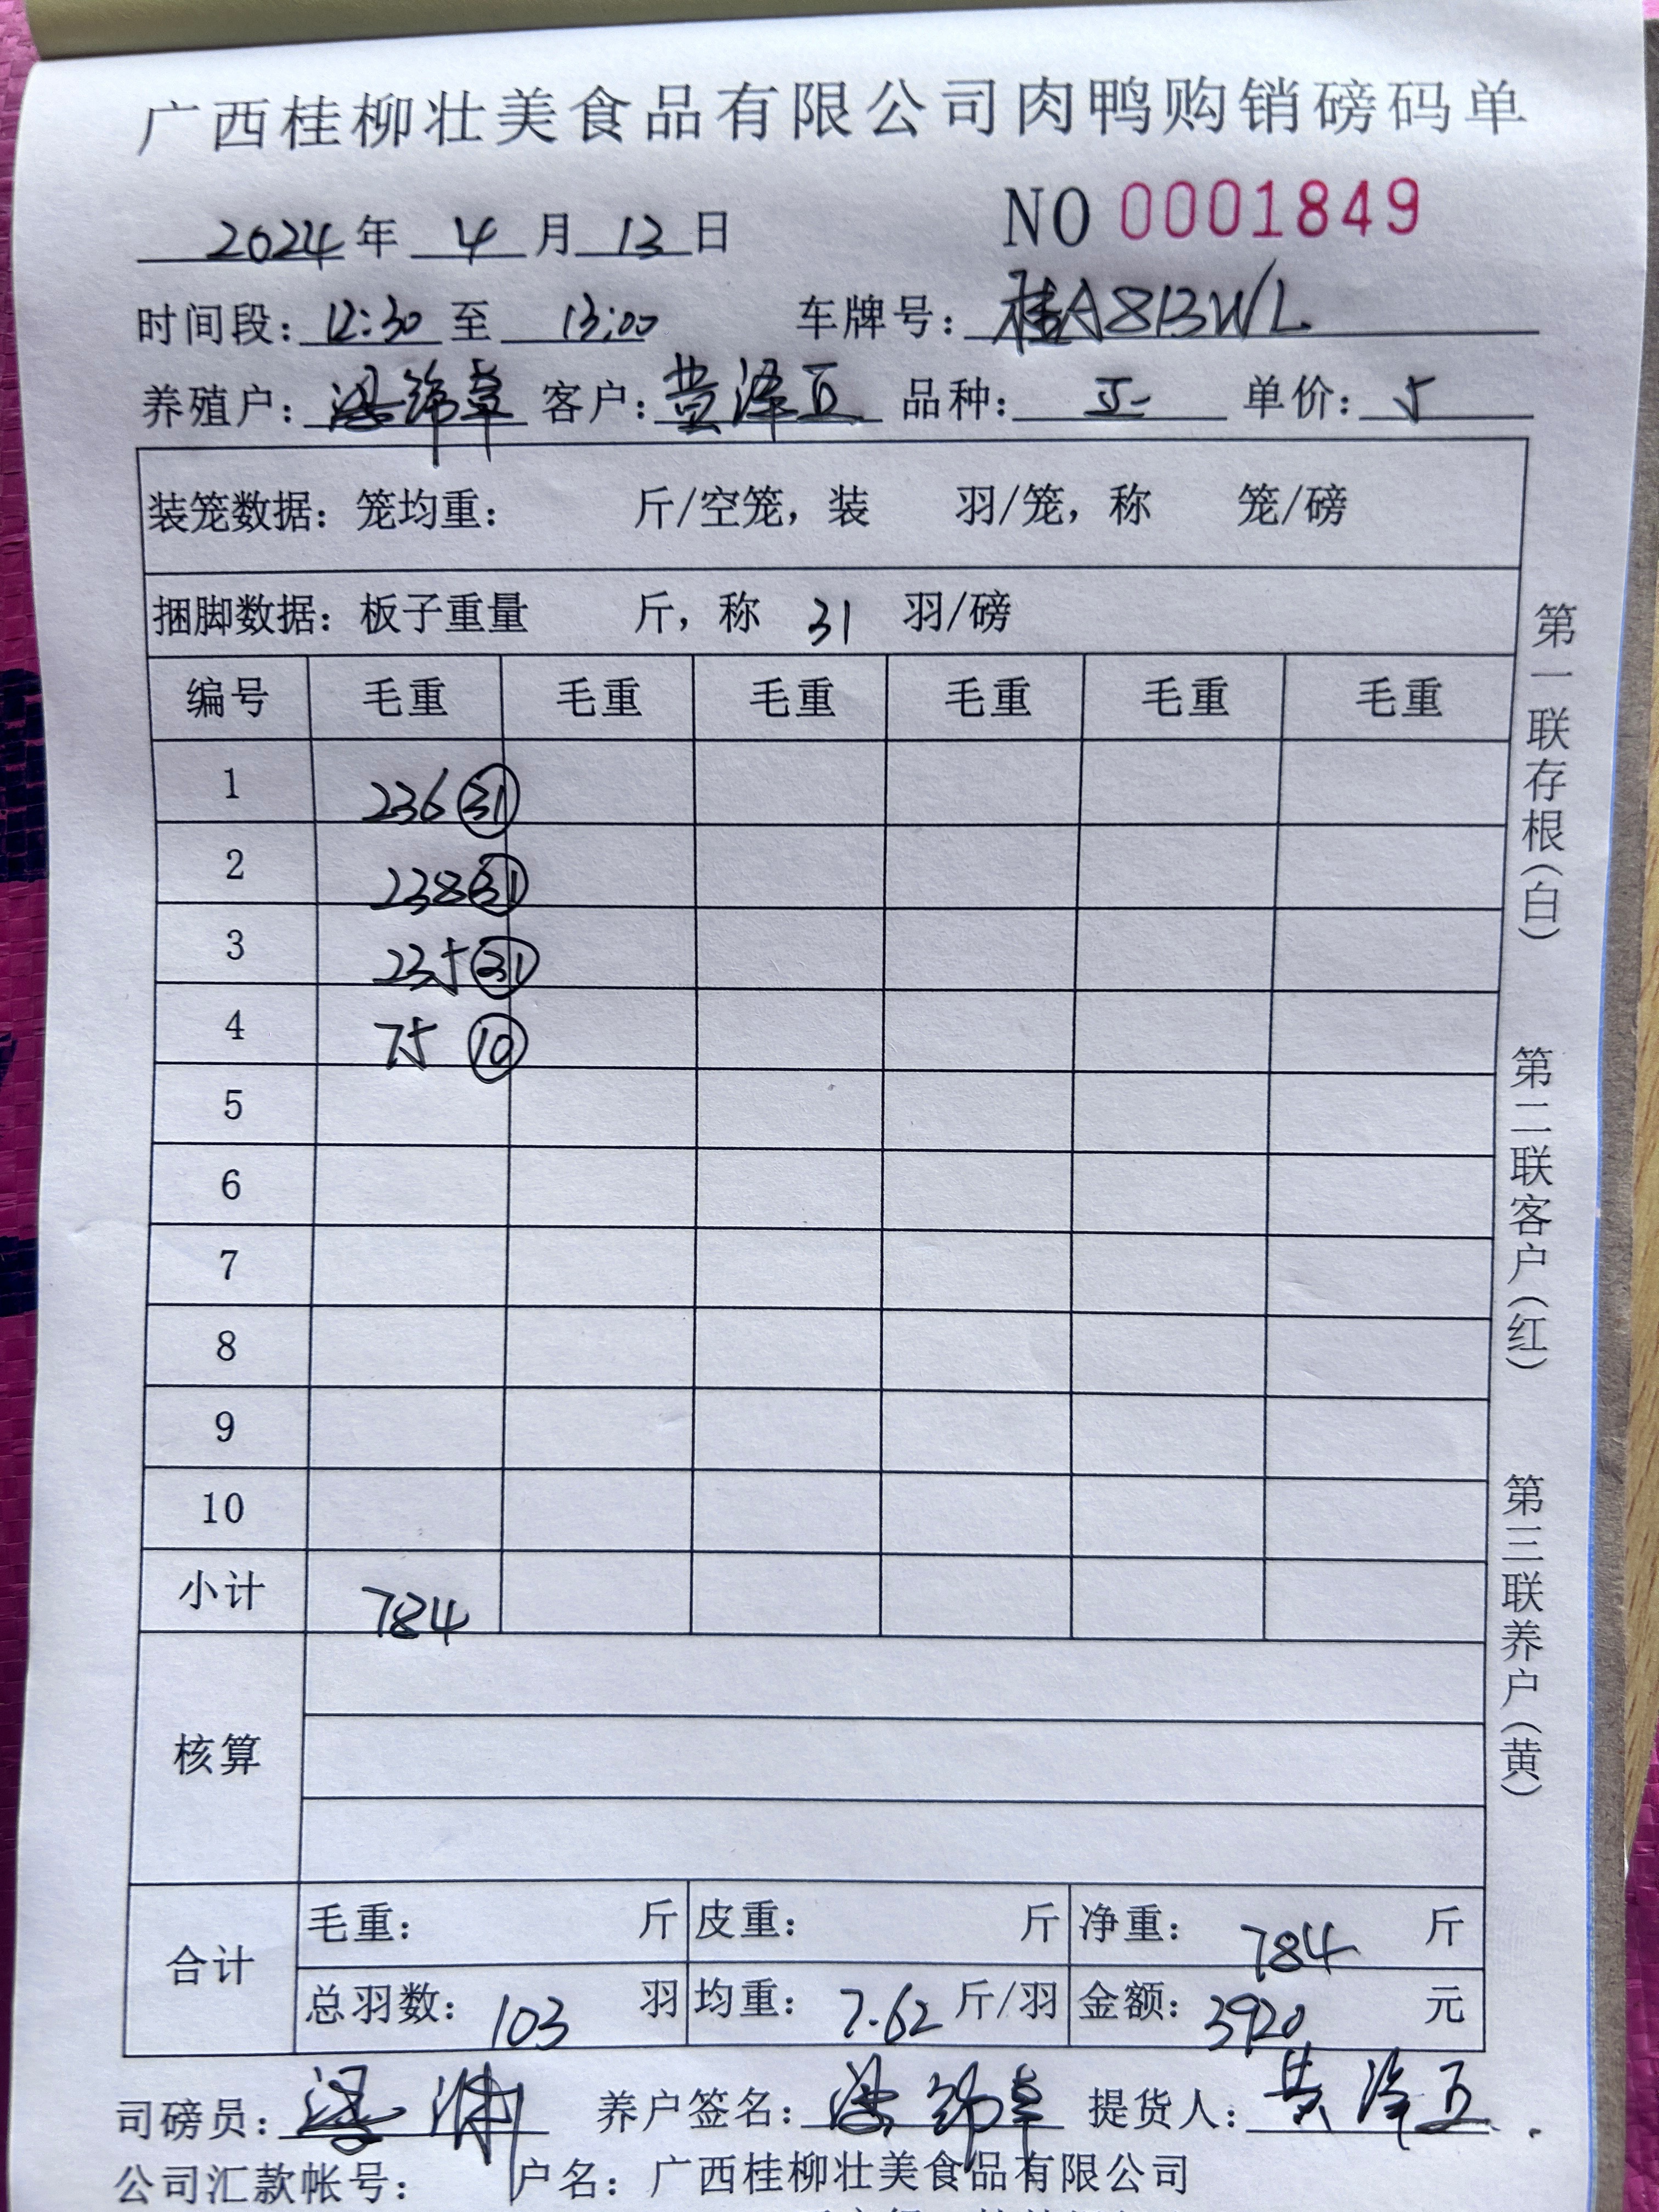 广西桂柳壮美食品有限公司肉鸭购销磅码单
2024年 4月13日 NO 0001849
时间段：12:30 至 13:00 车牌号：桂A813WL
养殖户：梁锦章 客户：黄泽五 品种： 单价：5
装笼数据：笼均重： 斤/空笼，装 羽/笼，称 笼/磅
捆脚数据：板子重量 斤，称 31 羽/磅
编号 毛重 毛重 毛重 毛重 毛重 毛重
1 236 31
2 238 31
3 235 31
4 75 10
5
6
7
8
9
10
小计 784
核算
合计
毛重： 斤 皮重： 斤 净重：784 斤
总羽数：103 羽 均重：7.62 斤/羽 金额：3920 元
司磅员：梁 养户签名：梁锦章 提货人：黄泽五
公司汇款帐号： 户名：广西桂柳壮美食品有限公司
第一联存根（白）
第二联客户（红）
第三联养户（黄）